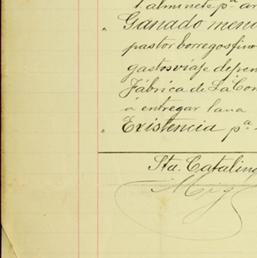 1 almirete pª ar
" Ganado meno
pastor borregos fino
gastos viaje depen
Fábrica de La Con
á entregar lana
" Existencia pª
Sta. Catalina
Mig